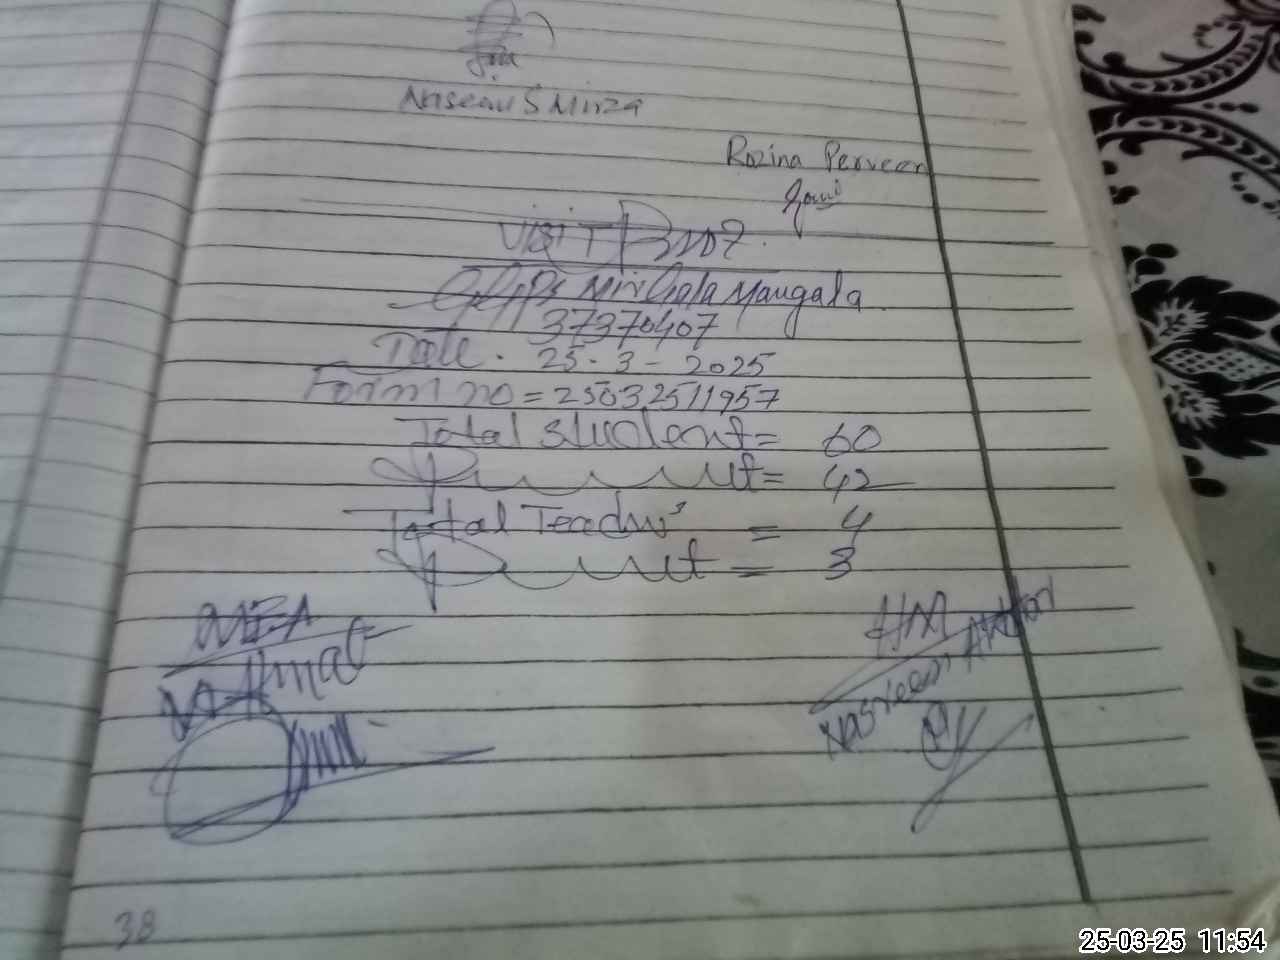 Naseem S Mirza
Rozina Perveen
Visit Proof
GGPS Miri Gala Mangala
37370407
Date. 25-3-2025
Form no = 25032511957
Total student = 60
Present = 42
Total Teachers = 4
Present = 3
MEA
HM
M. Ahmad
Nasreen Akhtar
38
25-03-25 11:54